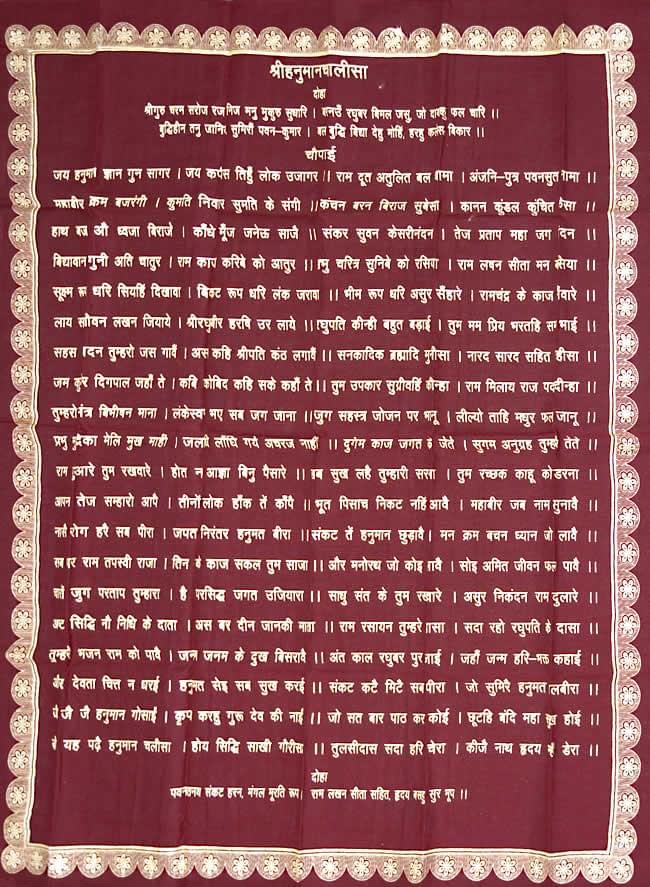 श्रीहनुमानचालीसा
दोहा
श्रीगुरु चरम सरोज रज निज मनु मुकुरु सुधारि । बरनउँ रघुबर बिमल जसु, जो दायकु फल चारि ।।
बुद्धिहीन तनु जानिए सुमिरौं पवन-कुमार । बल बुद्धि बिद्या देहु मोहिं, हरहु कलेस बिकार ।।
चौपाई
जय हनुमान ज्ञान गुन सागर । जय कपीस तिहुँ लोक उजागर ।। राम दूत अतुलित बल धामा । अंजनि-पुत्र पवनसुत नामा ।।
महाबीर क्रम बजरंगी । कुमति निवार सुमति के संगी ।। कंचन बरन बिराज सुबेसा । कानन कुंडल कुंचित केसा ।।
हाथ बज्र औ ध्वजा बिराजे । काँधे मूँज जनेऊ साजै ।। संकर सुवन केसरीनंदन । तेज प्रताप महा जग बंदन ।।
बिद्यावान गुनी अति चातुर । राम काज करिबे को आतुर ।। प्रभु चरित्र सुनिबे को रसिया । राम लषन सीता मन बसिया ।।
सूक्ष्म रूप धरि सियहिं दिखावा । बिकट रूप धरि लंक जरावा ।। भीम रूप धरि असुर सँहारे । रामचंद्र के काज सँवारे ।।
लाय सजीवन लखन जियाये । श्रीरघुबीर हरषि उर लाये ।। रघुपति कीन्ही बहुत बड़ाई । तुम मम प्रिय भरतहि सम भाई ।।
सहस बदन तुम्हरो जस गावैं । अस कहि श्रीपति कंठ लगावैं ।। सनकादिक ब्रह्मादि मुनीसा । नारद सारद सहित अहीसा ।।
जम कुबेर दिगपाल जहाँ ते । कबि कोबिद कहि सके कहाँ ते ।। तुम उपकार सुग्रीवहिं कीन्हा । राम मिलाय राज पद दीन्हा ।।
तुम्हरो मंत्र बिभीषन माना । लंकेस्वर भए सब जग जाना ।। जुग सहस्त्र जोजन पर भानू । लील्यो ताहि मधुर फल जानू ।।
प्रभु मुद्रिका मेलि मुख माही । जलधि लाँघि गये अचरज नाहीं ।। दुर्गम काज जगत के जेते । सुगम अनुग्रह तुम्हरे तेते ।।
राम दुआरे तुम रखवारे । होत न आज्ञा बिनु पैसारे ।। सब सुख लहै तुम्हारी सरना । तुम रच्छक काहू को डरना ।।
आपन तेज सम्हारो आपै । तीनों लोक हाँक तें काँपै ।। भूत पिसाच निकट नहिं आवै । महाबीर जब नाम सुनावै ।।
नासै रोग हरै सब पीरा । जपत निरंतर हनुमत बीरा ।। संकट तें हनुमान छुड़ावै । मन क्रम बचन ध्यान जो लावै ।।
सब पर राम तपस्वी राजा । तिन के काज सकल तुम साजा ।। और मनोरथ जो कोइ लावै । सोइ अमित जीवन फल पावै ।।
चारों जुग परताप तुम्हारा । है परसिद्ध जगत उजियारा ।। साधु संत के तुम रखवारे । असुर निकंदन राम दुलारे ।।
अष्ट सिद्धि नौ निधि के दाता । अस बर दीन जानकी माता ।। राम रसायन तुम्हरे पासा । सदा रहो रघुपति के दासा ।।
तुम्हरे भजन राम को पावै । जनम जनम के दुख बिसरावै ।। अंत काल रघुबर पुर जाई । जहाँ जन्म हरि-भक्त कहाई ।।
और देवता चित्त न धरई । हनुमत सेइ सब सुख करई ।। संकट कटै मिटै सब पीरा । जो सुमिरै हनुमत बलबीरा ।।
जै जै जै हनुमान गोसाईं । कृपा करहु गुरू देव की नाईं ।। जो सत बार पाठ कर कोई । छूटहि बंदि महा सुख होई ।।
जो यह पढ़ै हनुमान चलीसा । होय सिद्धि साखी गौरीसा ।। तुलसीदास सदा हरि चेरा । कीजै नाथ हृदय मँह डेरा ।।
दोहा
पवनतनय संकट हरन, मंगल मूरति रूप । राम लखन सीता सहित, हृदय बसहु सुर भूप ।।